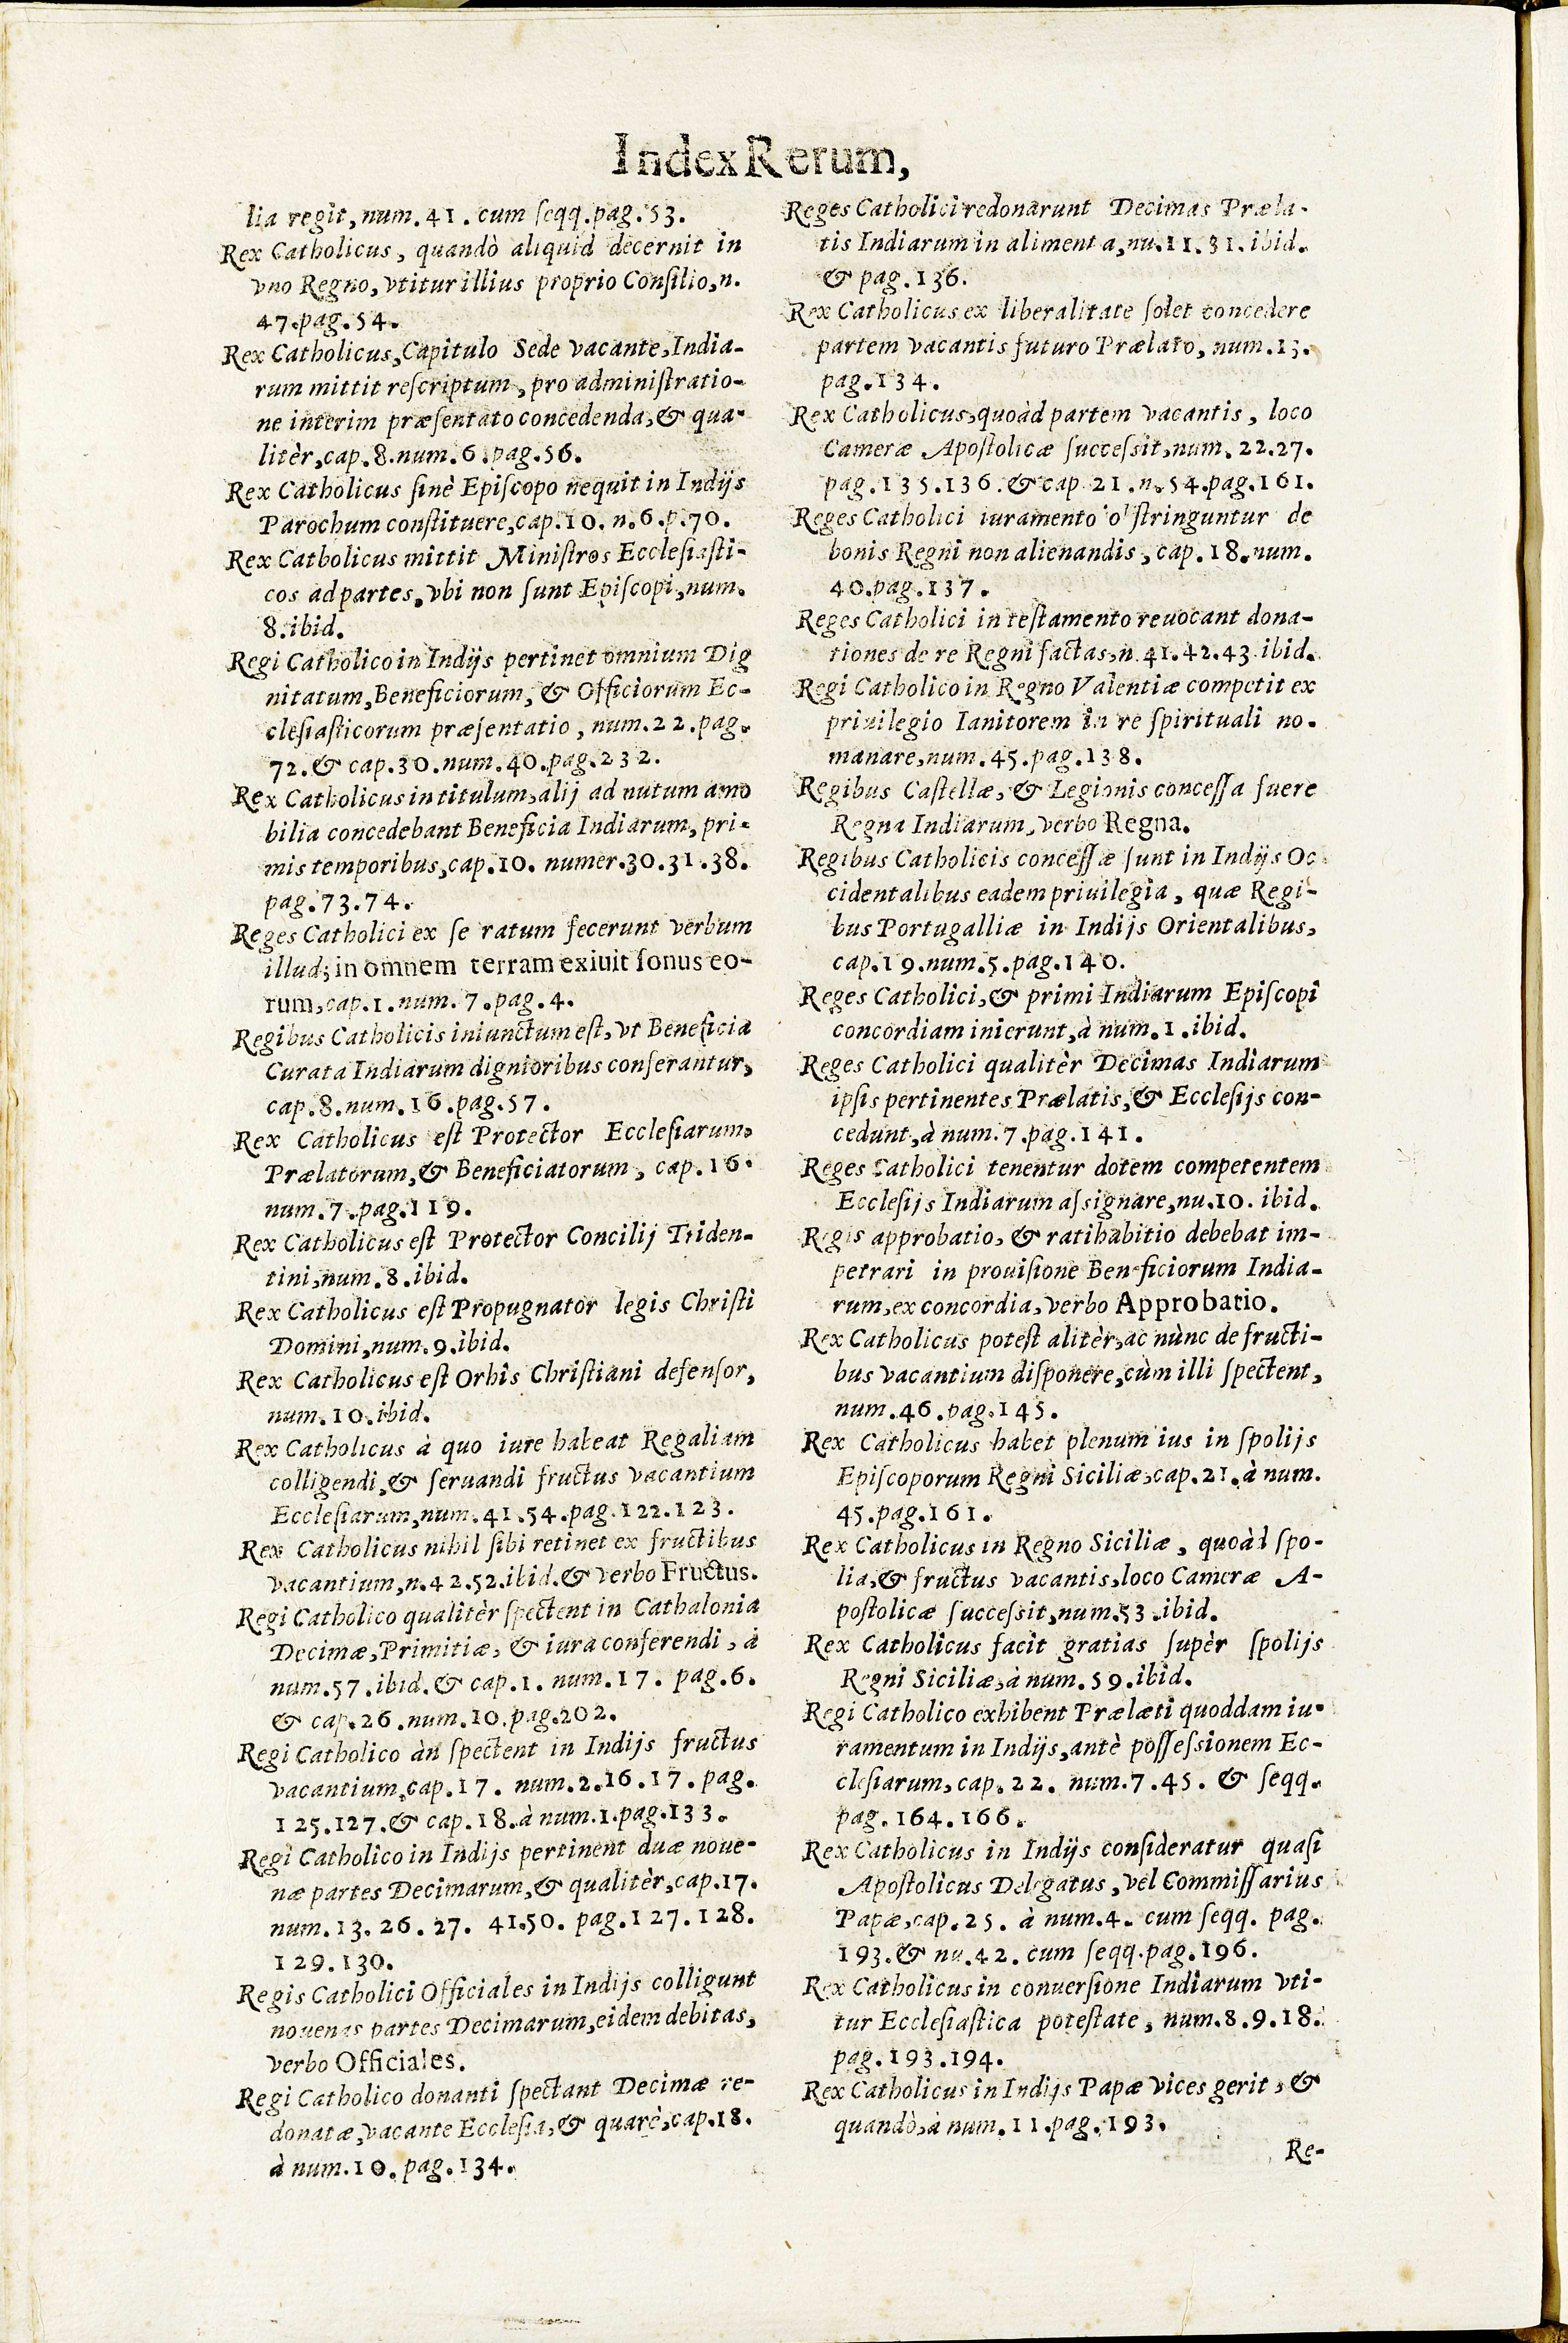 Index Rerum,
lia regit, num. 41. cum ſeqq. pag. 53.
Rex Catholicus, quandò aliquid decernit in
vno Regno, vtitur illius proprio Conſilio, n.
47. pag. 54.
Rex Catholicus, Capitulo Sede vacante, India-
rum mittit reſcriptum, pro adminiſtratio-
ne interim præſentato concedenda, & qua-
litèr, cap. 8. num. 6. pag. 56.
Rex Catholicus ſinè Epiſcopo nequit in Indijs
Parochum conſtituere, cap. 10. n. 6. p. 70.
Rex Catholicus mittit Miniſtros Eccleſiaſti-
cos ad partes, vbi non ſunt Epiſcopi, num.
8. ibid.
Regi Catholico in Indijs pertinet omnium Dig
nitatum, Beneficiorum, & Officiorum Ec-
cleſiaſticorum præſentatio, num. 22. pag.
72. & cap. 30. num. 40. pag. 232.
Rex Catholicus in titulum, alij ad nutum amo
bilia concedebant Beneficia Indiarum, pri-
mis temporibus, cap. 10. numer. 30. 31. 38.
pag. 73. 74.
Reges Catholici ex ſe ratum fecerunt verbum
illud; in omnem terram exiuit ſonus eo-
rum, cap. 1. num. 7. pag. 4.
Regibus Catholicis iniunctum eſt, vt Beneficia
Curata Indiarum dignioribus conferantur,
cap. 8. num. 16. pag. 57.
Rex Catholicus eſt Protector Eccleſiarum,
Prælatorum, & Beneficiatorum, cap. 16.
num. 7. pag. 119.
Rex Catholicus eſt Protector Concilij Triden-
tini, num. 8. ibid.
Rex Catholicus eſt Propugnator legis Chriſti
Domini, num. 9. ibid.
Rex Catholicus eſt Orbis Chriſtiani defenſor,
num. 10. ibid.
Rex Catholicus à quo iure habeat Regaliam
colligendi, & ſeruandi fructus vacantium
Eccleſiarum, num. 41. 54. pag. 122. 123.
Rex Catholicus nihil ſibi retinet ex fructibus
vacantium, n. 42. 52. ibid. & verbo Fructus.
Regi Catholico qualitèr ſpectent in Cathalonia
Decimæ, Primitiæ, & iura conferendi, à
num. 57. ibid. & cap. 1. num. 17. pag. 6.
& cap. 26. num. 10. pag. 202.
Regi Catholico àn ſpectent in Indijs fructus
vacantium, cap. 17. num. 2. 16. 17. pag.
125. 127. & cap. 18. à num. 1. pag. 133.
Regi Catholico in Indijs pertinent duæ noue-
næ partes Decimarum, & qualitèr, cap. 17.
num. 13. 26. 27. 41. 50. pag. 127. 128.
129. 130.
Regis Catholici Officiales in Indijs colligunt
nouenas partes Decimarum, eidem debitas,
verbo Officiales.
Regi Catholico donanti ſpectant Decimæ re-
donatæ, vacante Eccleſia, & quarè, cap. 18.
à num. 10. pag. 134.
Reges Catholici redonarunt Decimas Præla-
tis Indiarum in alimenta, nu. 11. 31. ibid.
& pag. 136.
Rex Catholicus ex liberalitate ſolet concedere
partem vacantis futuro Prælato, num. 13.
pag. 134.
Rex Catholicus, quoàd partem vacantis, loco
Cameræ Apoſtolicæ ſucceſsit, num. 22. 27.
pag. 135. 136. & cap 21. n. 54. pag. 161.
Reges Catholici iuramento obſtringuntur de
bonis Regni non alienandis, cap. 18. num.
40. pag. 137.
Reges Catholici in teſtamento reuocant dona-
tiones de re Regni factas, n. 41. 42. 43. ibid.
Regi Catholico in Regno Valentiæ competit ex
priuilegio Ianitorem in re ſpirituali no-
manare, num. 45. pag. 138.
Regibus Caſtellæ, & Legionis conceſſa fuere
Regna Indiarum, verbo Regna.
Regibus Catholicis conceſſæ ſunt in Indijs Oc
cidentalibus eadem priuilegia, quæ Regi-
bus Portugalliæ in Indijs Orientalibus,
cap. 19. num. 5. pag. 140.
Reges Catholici, & primi Indiarum Epiſcopi
concordiam inierunt, à num. 1. ibid.
Reges Catholici qualitèr Decimas Indiarum
ipſis pertinentes Prælatis, & Eccleſijs con-
cedunt, à num. 7. pag. 141.
Reges Catholici tenentur dotem competentem
Eccleſijs Indiarum aſsignare, nu. 10. ibid.
Regis approbatio, & ratihabitio debebat im-
petrari in prouiſione Beneficiorum India-
rum, ex concordia, verbo Approbatio.
Rex Catholicus poteſt alitèr, ac nùnc de fructi-
bus vacantium diſponere, cùm illi ſpectent,
num. 46. pag. 145.
Rex Catholicus habet plenum ius in ſpolijs
Epiſcoporum Regni Siciliæ, cap. 21. à num.
45. pag. 161.
Rex Catholicus in Regno Siciliæ, quoàd ſpo-
lia, & fructus vacantis, loco Cameræ A-
poſtolicæ ſucceſsit, num. 53. ibid.
Rex Catholicus facit gratias ſupèr ſpolijs
Regni Siciliæ, à num. 59. ibid.
Regi Catholico exhibent Prælæti quoddam iu-
ramentum in Indijs, antè poſſeſsionem Ec-
cleſiarum, cap. 22. num. 7. 45. & ſeqq.
pag. 164. 166.
Rex Catholicus in Indijs conſideratur quaſi
Apoſtolicus Delegatus, vel Commiſſarius
Papæ, cap. 25. à num. 4. cum ſeqq. pag.
193. & nu. 42. cum ſeqq. pag. 196.
Rex Catholicus in conuerſione Indiarum vti-
tur Eccleſiaſtica poteſtate, num. 8. 9. 18.
pag. 193. 194.
Rex Catholicus in Indijs Papæ vices gerit, &
quandò, à num. 11. pag. 193.
Re-